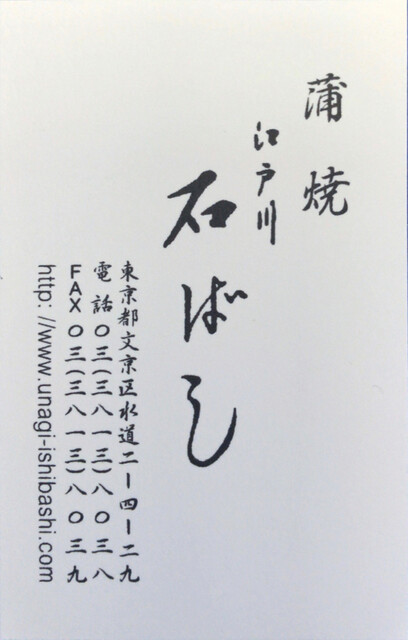 蒲焼
江戸川
石ばし
東京都文京区水道二ー四ー二九
電話〇三(三八一三)八〇三八
FAX〇三(三八一三)八〇三九
http://www.unagi-ishibashi.com